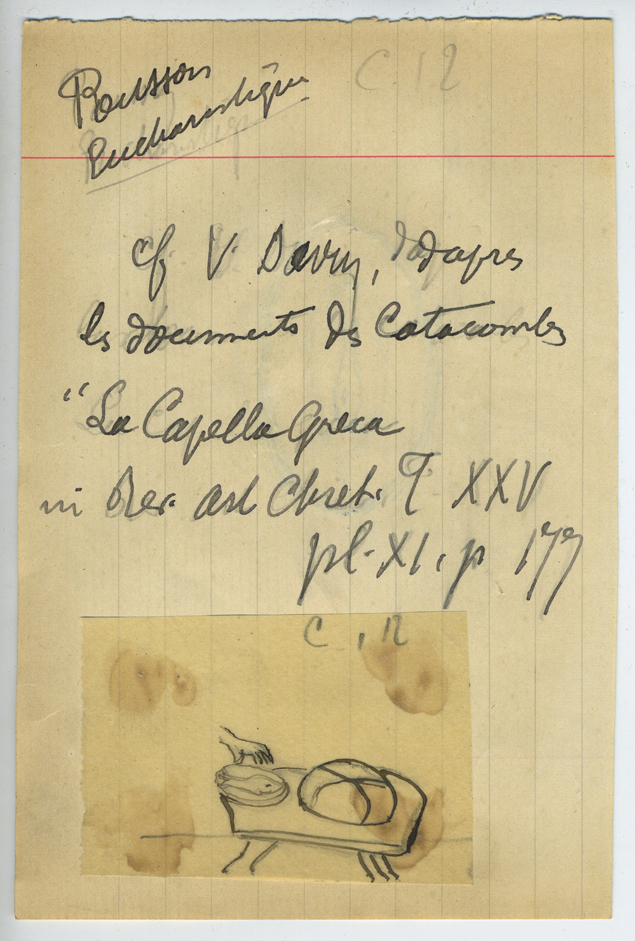 Poisson C. 12
Eucharistique
cf V. Davin, d'après
les documents des Catacombes
"La Capella Greca
in Rev. art Chret. T XXV
pl. XI, p 177
C, 12